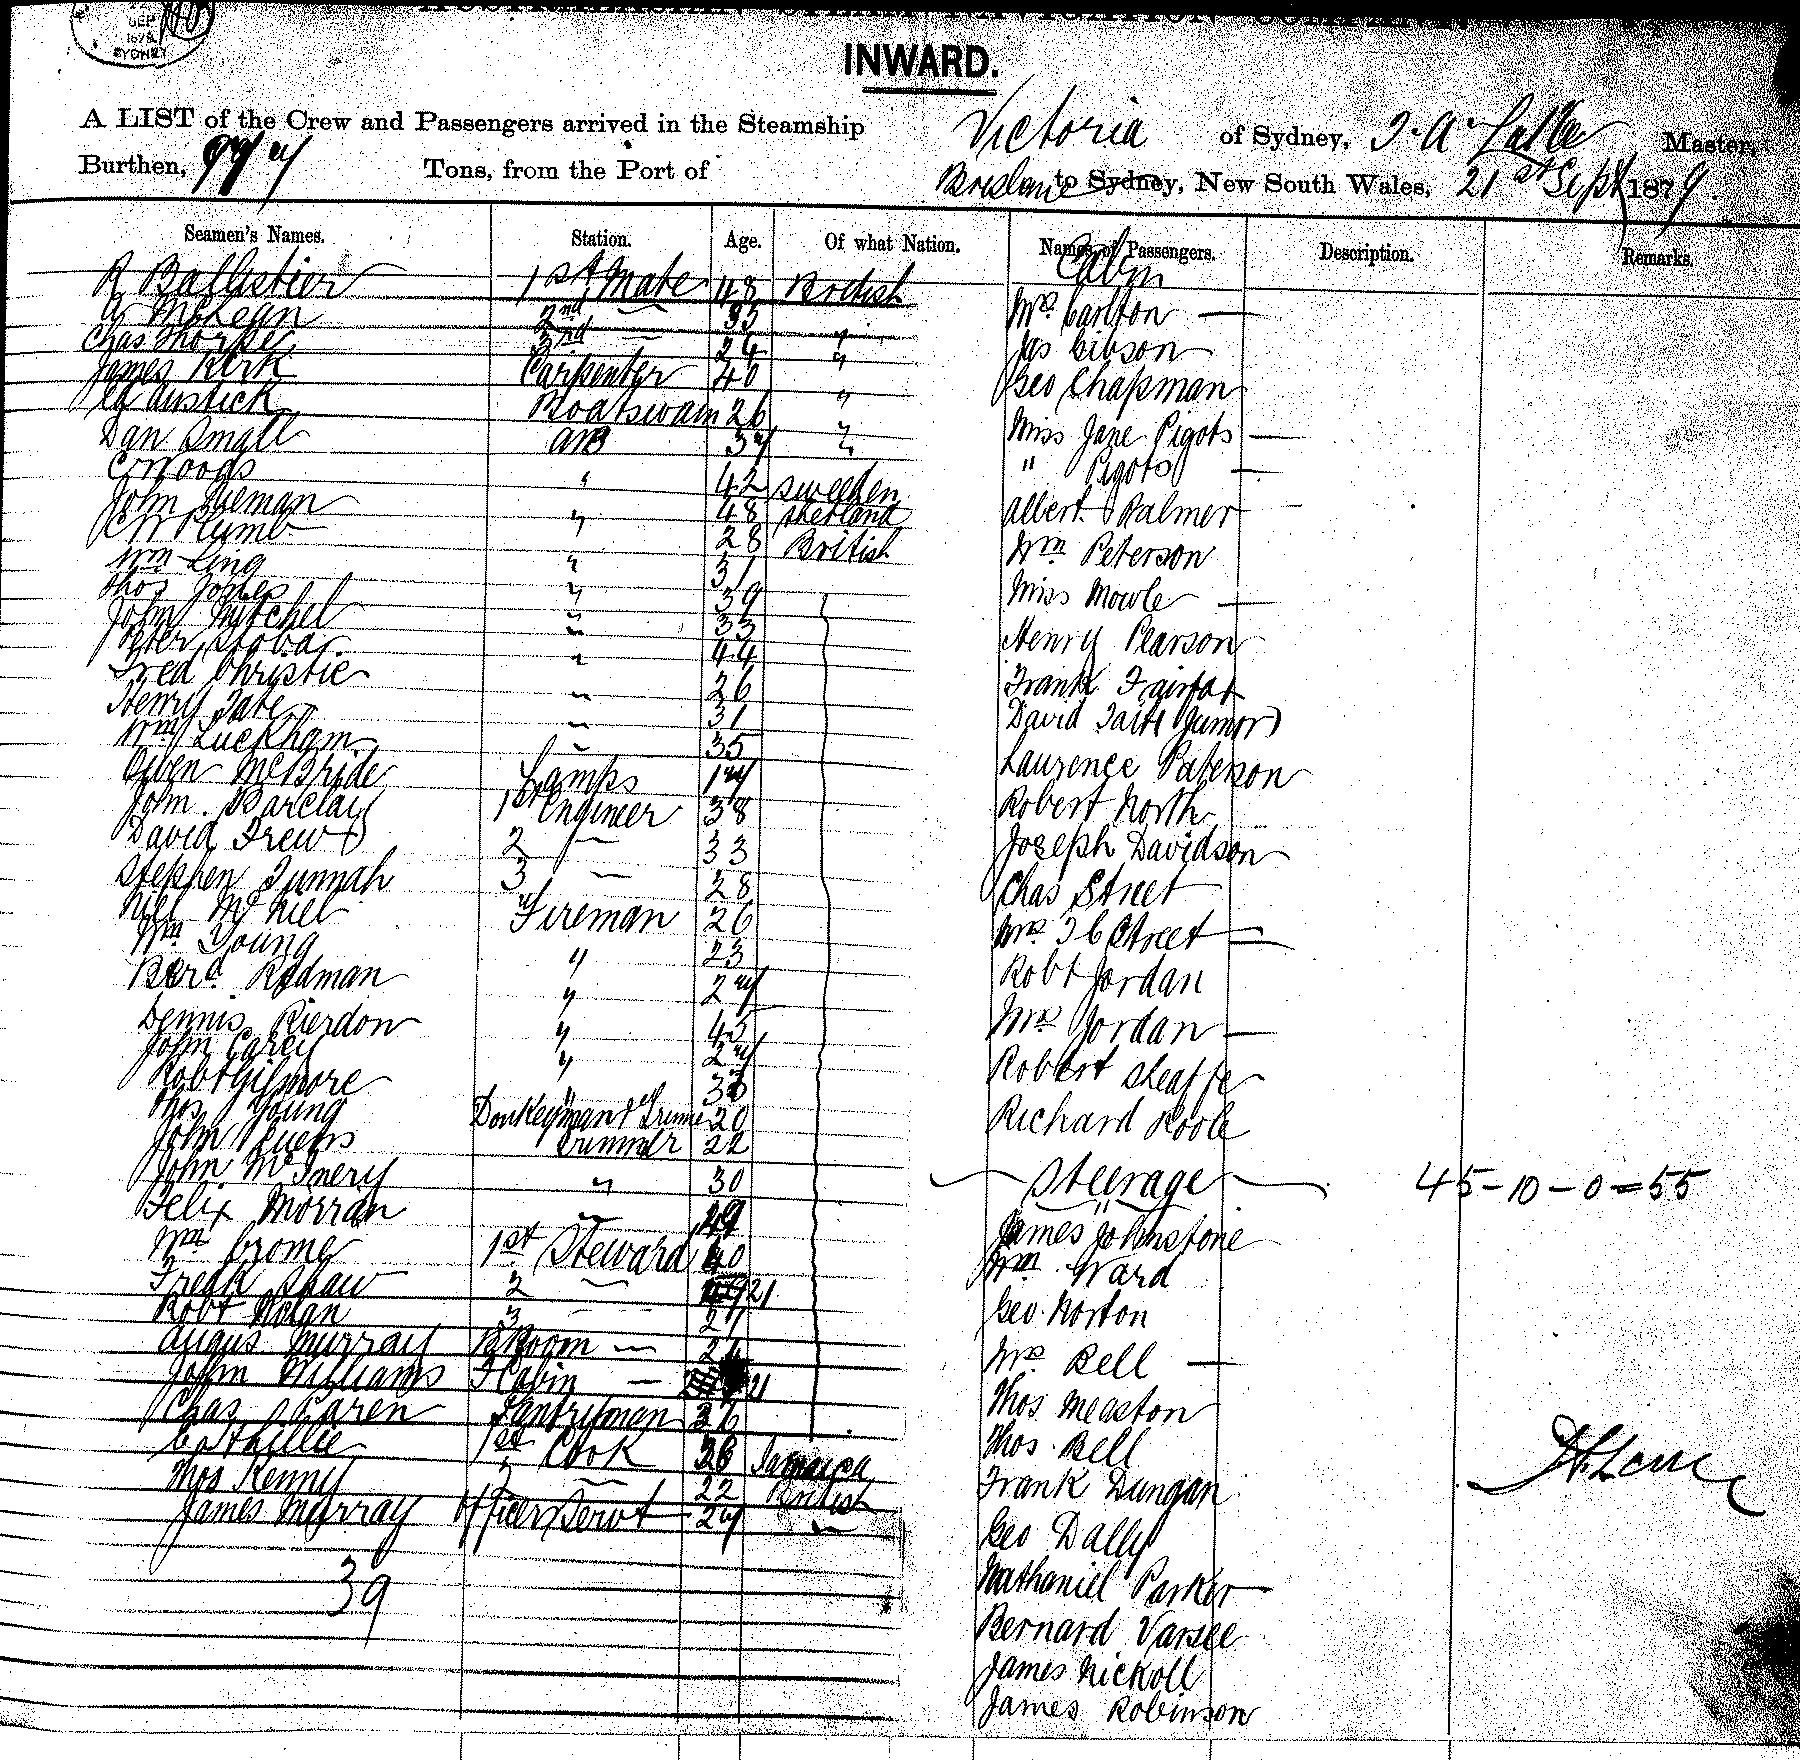 SEP
1879
SYDNEY
INWARD.
A LIST of the Crew and Passengers arrived in the Steamship Victoria of Sydney, Master,
Burthen, Tons, from the Port of Brisbane to Sydney, New South Wales, 21st Sept 1879
Seamen's Names. Station. Age. Of what Nation. Names of Passengers. Description. Remarks.
R Ballistier 1st Mate 48 British
A McLean 2nd — 33 "
Chas Thorpe 3rd 24 "
James Kirk Carpenter 40 "
Boatswain 26
Dan Small AB 37 "
C Woods " 42 Sweeden
John " 48 Shetland
C W Plumb " 28 British
Wm Ling " 31
Thos Jones " 39
John Mitchel " 33
Peter " 44
Fred Christie " 26
Henry Tate " 31
Wm Luckham " 35
Owen McBride Lamps 17
John Barclay 1st Engineer 38
David Drew 2 — 33
Stephen Tunnah 3 — 28
Neil McNiel Fireman 26
Wm Young " 23
Redman " 27
Dennis Rierdon " 45
John Carey " 27
Robt Gilmore " 33
Thos Young Donkeyman & Trimmer 20
John Trimmer 22
John McInery " 30
Felix Morran " 49
Wm Crome 1st Steward 40
Fredk Shaw 2 — 21
Robt Nolan 3 — 27
Angus Murray B Room — 24
John Williams F Cabin — 21
Chas Pantryman 36
1st Cook 36 Jamaica
Thos Kenny 2 — 22 British
James Murray Officers Servt 27 "
39
Cabin
Mrs Carlton —
Jas Gibson
Geo Chapman
Miss Jane Pigots —
" Pigots —
Albert Palmer
Wm Peterson
Miss Mowle —
Henry Pearson
Frank Fairfax
David Taite (Junior)
Laurence Paterson
Robert North
Joseph Davidson
Chas Street
Mrs Street —
Robt Jordan
Mrs Jordan —
Robert Sheaffe
Richard Poole
Steerage
45-10-0=55
James Johnstone
Wm Ward
Geo Norton
Mrs Bell —
Thos Measton
Thos Bell
Frank Dungan
Geo Dally
Nathaniel Parker
Bernard Varsee
James Nickoll
James Robinson